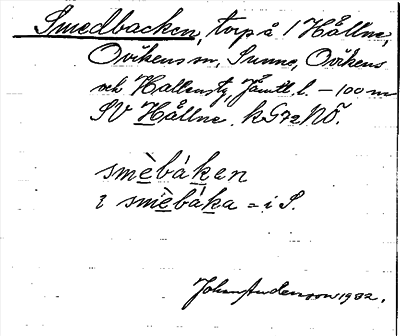 Smedbacken, torp å 1 Hållne,
Ovikens sn, Sunne, Ovikens
och Hallens tg, Jämtl. l. – 100 m
SV Hållne. k G72NÖ.
smèbáken
i smèbáka = i S.
Johan Anderson 1932.